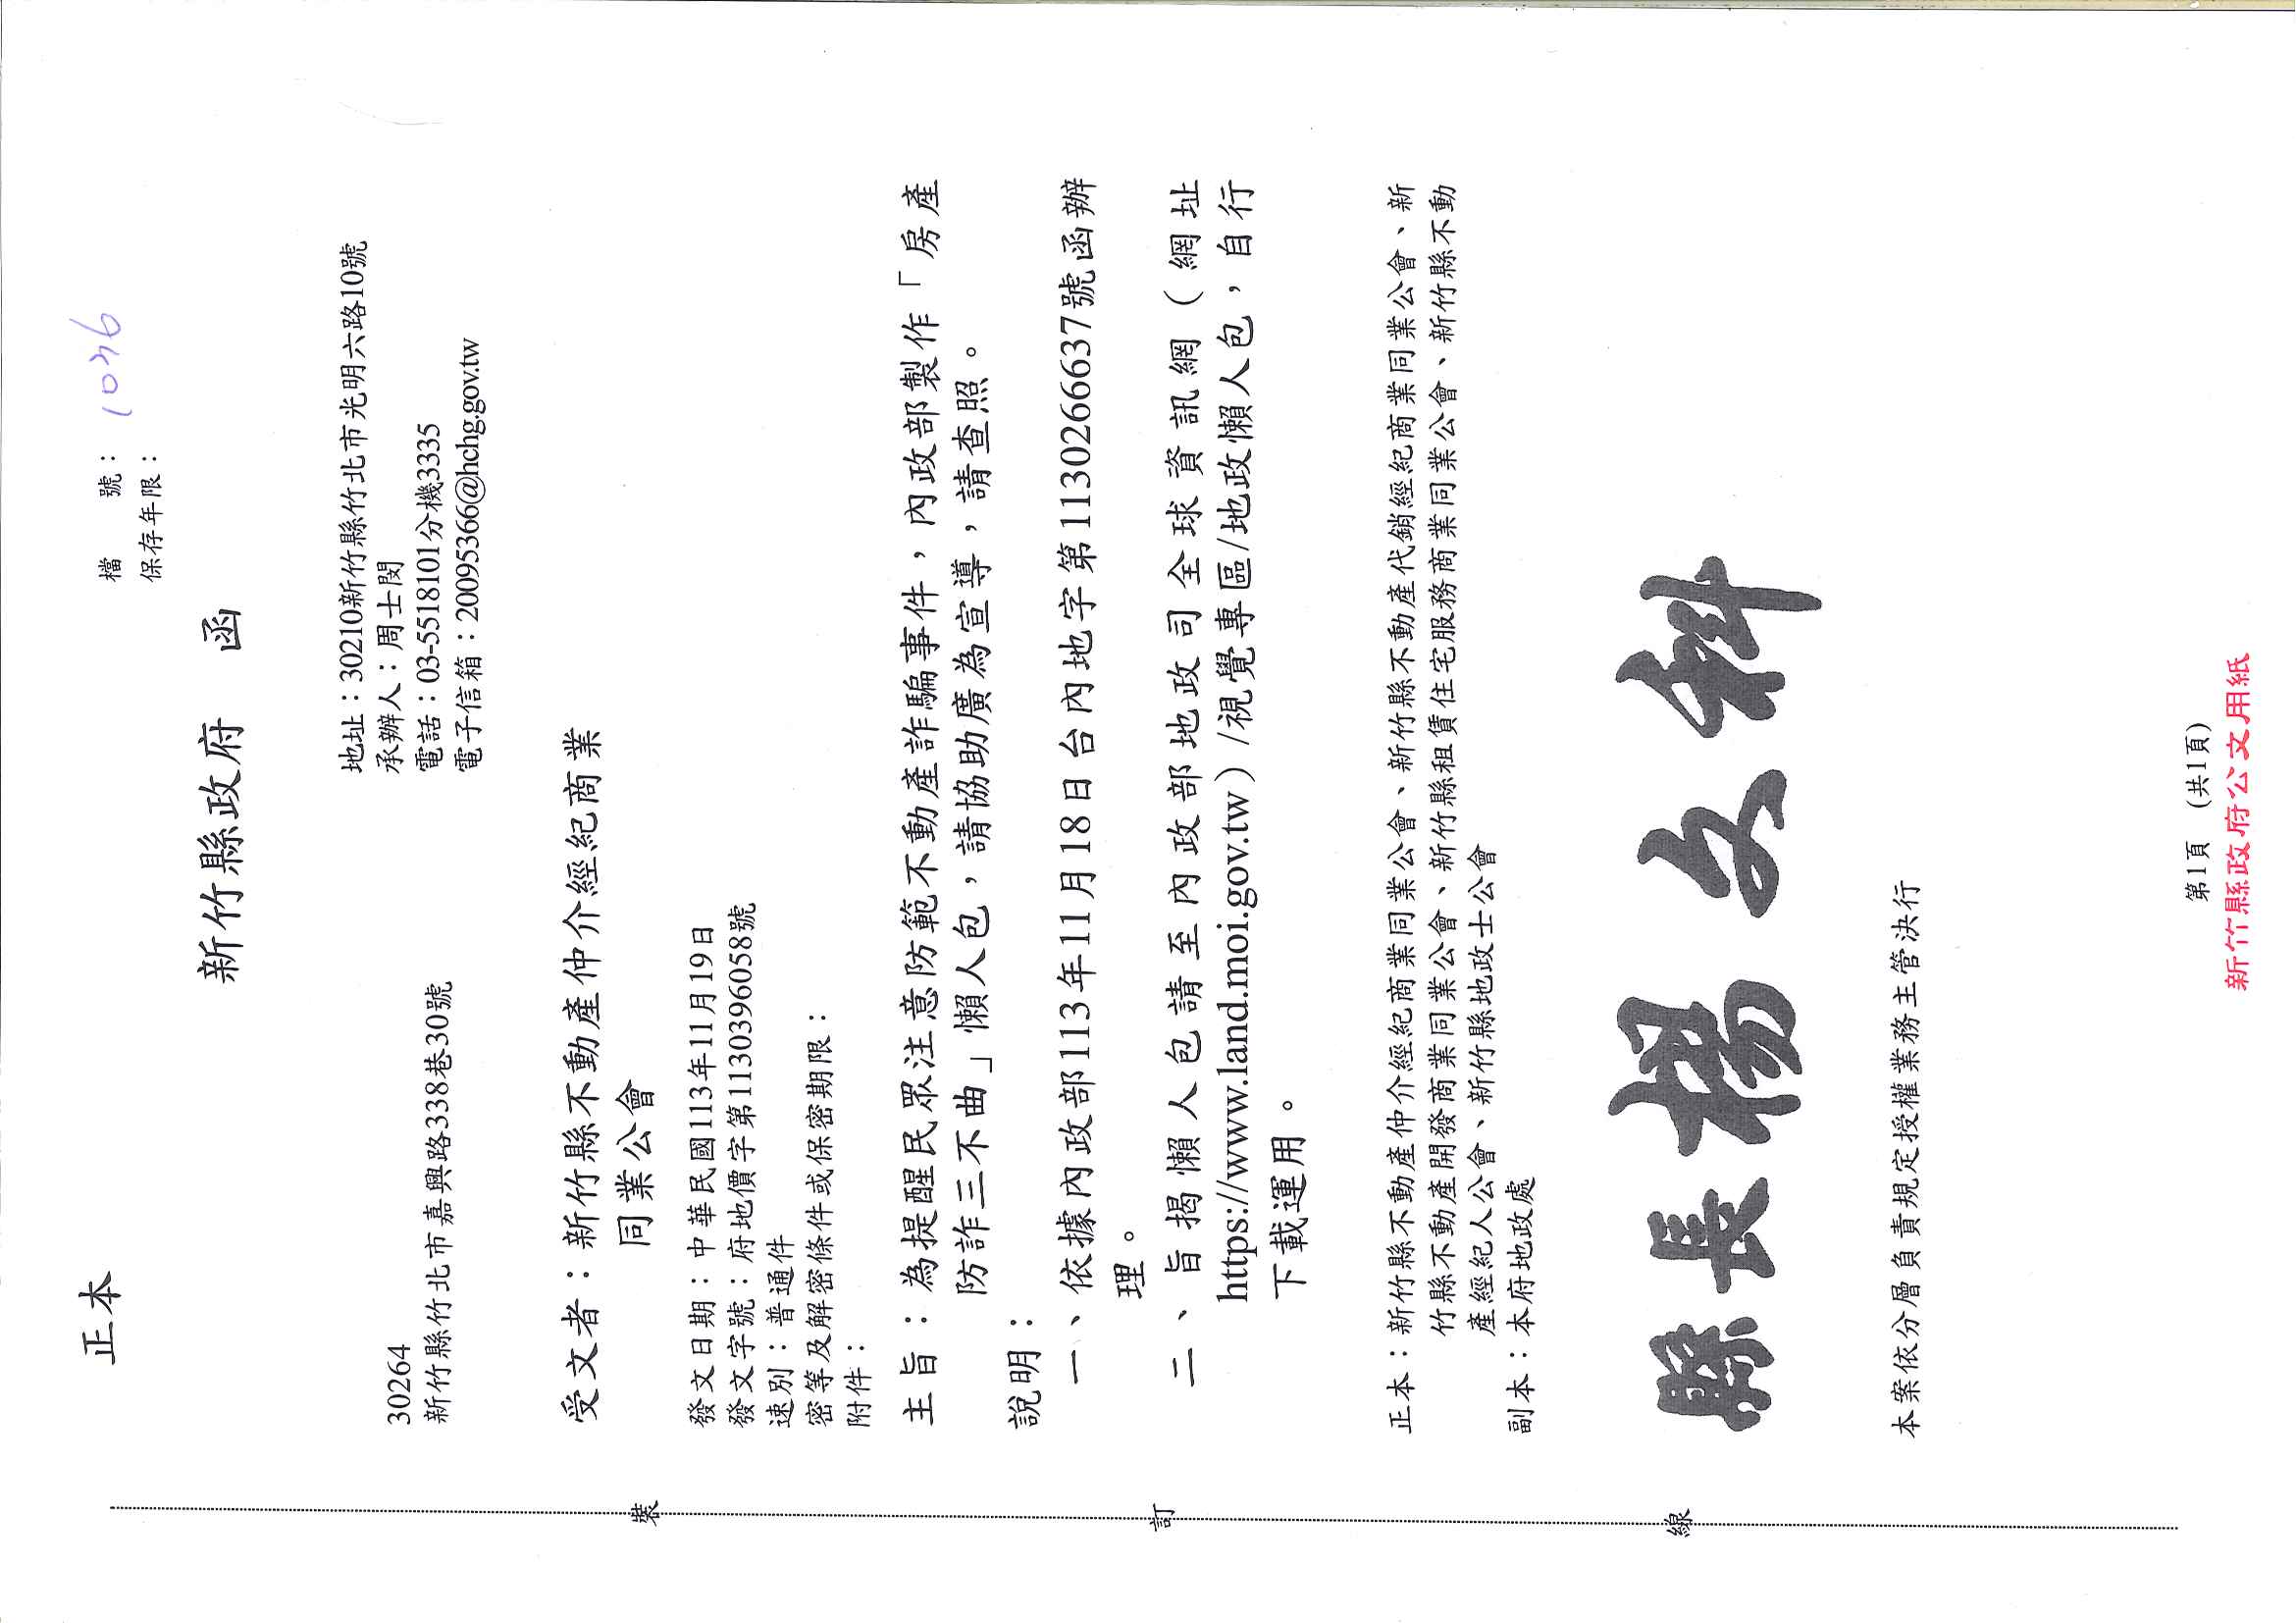 正本
檔　　號：1036
保存年限：
新竹縣政府　函
地址：30210新竹縣竹北市光明六路10號
承辦人：周士閔
電話：03-5518101分機3335
電子信箱：20095366@hchg.gov.tw
30264
新竹縣竹北市嘉興路338巷30號
受文者：新竹縣不動產仲介經紀商業
同業公會
發文日期：中華民國113年11月19日
發文字號：府地價字第1130396058號
速別：普通件
密等及解密條件或保密期限：
附件：
主旨：為提醒民眾注意防範不動產詐騙事件，內政部製作「房產
防詐三不曲」懶人包，請協助廣為宣導，請查照。
說明：
一、依據內政部113年11月18日台內地字第1130266637號函辦
理。
二、旨揭懶人包請至內政部地政司全球資訊網（網址
https://www.land.moi.gov.tw）/視覺專區/地政懶人包，自行
下載運用。
正本：新竹縣不動產仲介經紀商業同業公會、新竹縣不動產代銷經紀商業同業公會、新
竹縣不動產開發商業同業公會、新竹縣租賃住宅服務商業同業公會、新竹縣不動
產經紀人公會、新竹縣地政士公會
副本：本府地政處
縣長楊文科
本案依分層負責規定授權業務主管決行
第1頁（共1頁）
新竹縣政府公文用紙
裝
訂
線